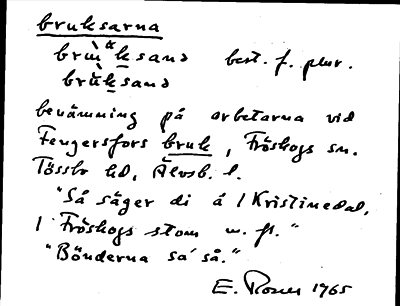 bruksarna
brùksana best. f. plur.
brùksana
benämning på arbetarna vid
Fengersfors bruk, Fröskogs sn.
Tössbo hd, Älvsb. l.
"Så säger di å i Kristinedal,
i Fröskogs stom m. fl."
"Bönderna sa' så."
E. 1765